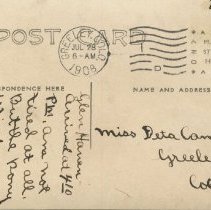 POST CARD
GREELEY, COLO.
JUL 28
6-AM
1908
NDENCE HERE
NAME AND ADDRES
Glen Haven
Arrived at 4:10
P.M. am not
tired at all.
But the pony
is
Miss Deta Cam
Greele
Col